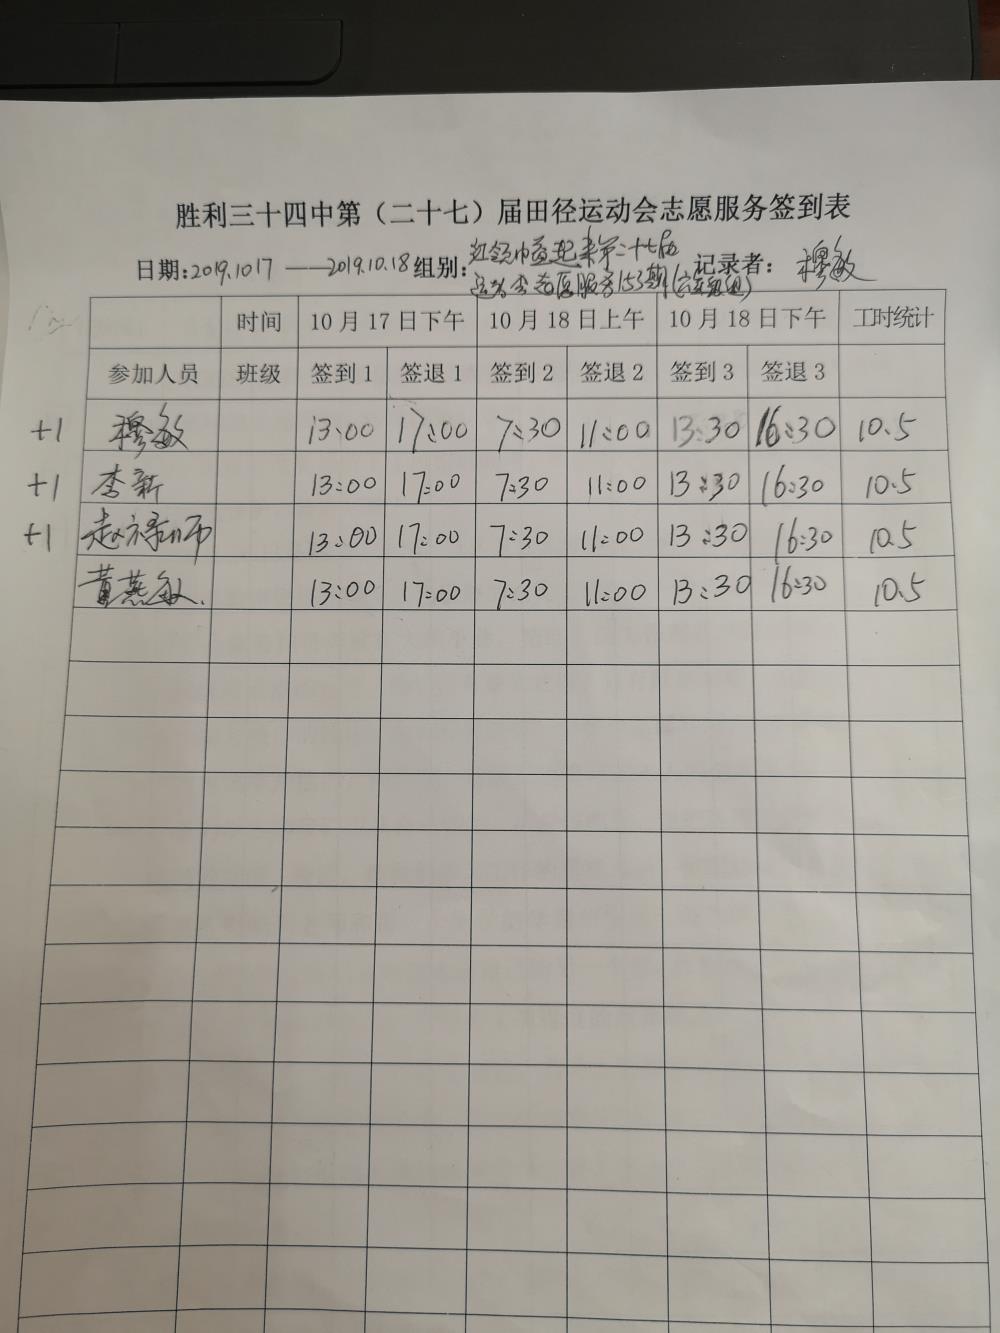 胜利三十四中第（二十七）届田径运动会志愿服务签到表
日期:2019.1017——2019.10.18 组别: 红领巾益起来第二十七届 记录者：穆敏
运动会志愿服务153期
时间 10月17日下午 10月18日上午 10月18日下午 工时统计
参加人员 班级 签到1 签退1 签到2 签退2 签到3 签退3
+1 穆敏 13:00 17:00 7:30 11:00 13:30 16:30 10.5
+1 李新 13:00 17:00 7:30 11:00 13:30 16:30 10.5
+1 赵 13:00 17:00 7:30 11:00 13:30 16:30 10.5
黄燕敏. 13:00 17:00 7:30 11:00 13:30 16:30 10.5